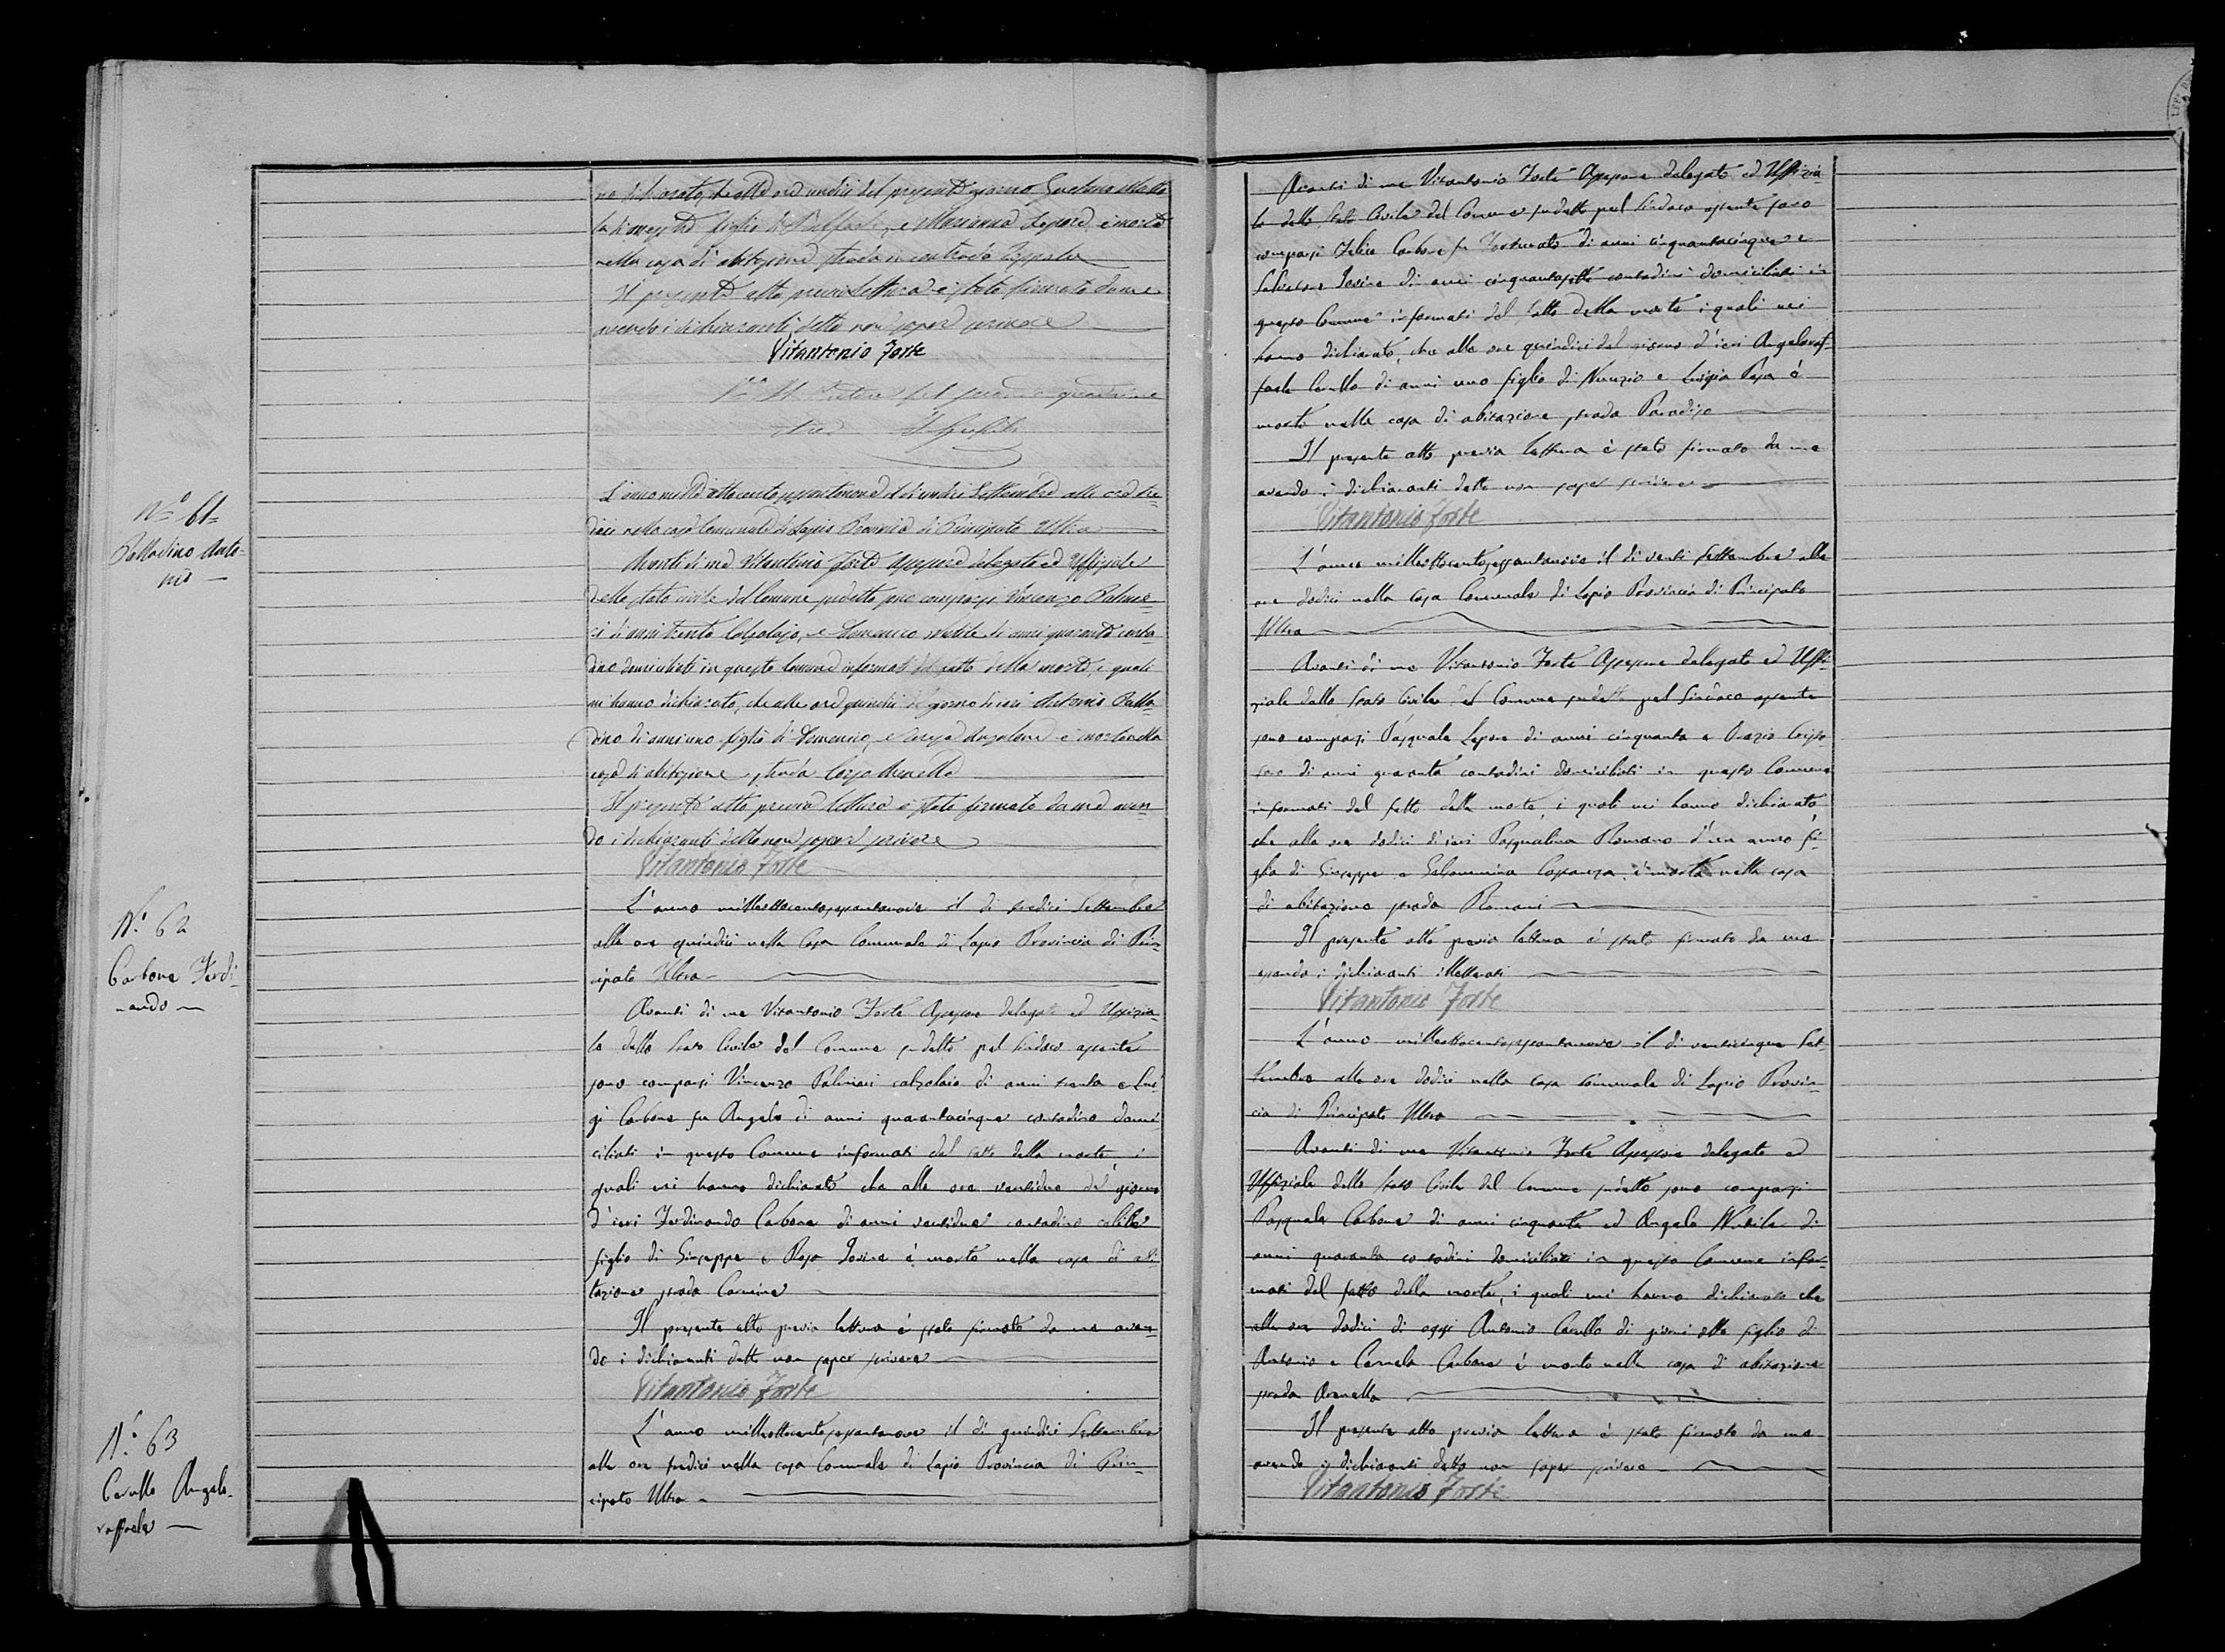 no dichiarato, che alle ore undici del presente giorno
figlio di Raffaele, e Marianna Lepore, è morto
nella casa di abitazione strada contrada
Il presente atto previa lettura è stato firmato da me
avendo i dichiaranti detto non saper scrivere
Vitantonio Forte
Il Pretore
Nº 61=
Palladino Anto-
nio —
L'anno mille ottocento sessantanove il dì undici Settembre alle ore tre-
dici nella casa Comunale di Lapio Provincia di Principato Ultra
Avanti di me Vitantonio Forte Assessore delegato ed Uffiziale
dello stato civile del Comune sudetto sono comparsi Vincenzo Palmie-
ri di anni trenta Calzolajo, e Domenico Nubile di anni quaranta conta-
dino domiciliati in questo Comune informati del fatto della morte, i quali
mi hanno dichiarato, che alle ore quindici del giorno di ieri Antonio Palla-
dino di anni uno figlio di Domenico, e Teresa è morto nella
casa di abitazione, strada Corso Arenella
Il presente atto previa lettura è stato firmato da me aven-
do i dichiaranti detto non saper scrivere
Vitantonio Forte
Nº 62
Carbone Ferdi-
nando —
L'anno milleottocentosessantanove il dì tredici Settembre
alle ore quindici nella Casa Comunale di Lapio Provincia di Prin-
cipato Ultra —
Avanti di me Vitantonio Forte Assessore delegato ed Uffizia-
le dello Stato Civile del Comune sudetto pel Sindaco assente
sono comparsi Vincenzo Palmieri calzolaio di anni trenta e Lui-
gi Carbone fu Angelo di anni quarantacinque contadino domi-
ciliati in questo Comune informati del fatto della morte i
quali mi hanno dichiarato che alle ore ventidue del giorno
d'ieri Ferdinando Carbone di anni ventidue contadino celibe
figlio di Giuseppe e Rosa Iovine è morto nella casa di abi-
tazione strada Carmine
Il presente atto previa lettura è stato firmato da me aven-
do i dichiaranti detto non saper scrivere
Vitantonio Forte
Nº 63
Carullo Angelo-
raffaele —
L'anno milleottocentosessantanove il dì quindici Settembre
alle ore tredici nella casa Comunale di Lapio Provincia di Prin-
cipato Ultra —
Avanti di me Vitantonio Forte Assessore delegato ed Uffizia-
le dello Stato Civile del Comune sudetto pel Sindaco assente sono
comparsi Felice Carbone fu Fortunato di anni cinquantacinque e
Salvatore Iovine di anni cinquantasette contadini domiciliati in
questo Comune informati del fatto della morte i quali mi
hanno dichiarato, che alle ore quindici del giorno d'ieri Angeloraf-
faele Carullo di anni uno figlio di Nunzio e Luigia Pepa è
morto nella casa di abitazione strada Paradiso
Il presente atto previa lettura è stato firmato da me
avendo i dichiaranti detto non saper scrivere
Vitantonio Forte
L'anno milleottocentosessantanove il dì venti Settembre alle
ore dodici nella Casa Comunale di Lapio Provincia di Principato
Ultra
Avanti di me Vitantonio Forte Assessore delegato ed Uffi-
ziale dello Stato Civile del Comune sudetto pel Sindaco assente
sono comparsi Pasquale Lepore di anni cinquanta e Orazio
di anni quaranta contadini domiciliati in questo Comune
informati del fatto della morte, i quali mi hanno dichiarato
che alle ore dodici d'ieri Pasqualina Romano d'un anno fi-
glia di Giuseppe e Filomenina è morta nella casa
di abitazione strada Romani
Il presente atto previa lettura è stato firmato da me
essendo i dichiaranti illetterati
Vitantonio Forte
L'anno milleottocentosessantanove il dì venticinque Set-
tembre alle ore dodici nella casa Comunale di Lapio Provin-
cia di Principato Ultra
Avanti di me Vitantonio Forte Assessore delegato ed
Uffiziale dello Stato Civile del Comune sudetto sono comparsi
Pasquale Carbone di anni cinquanta ed Angelo Nubile di
anni quaranta contadini domiciliati in questo Comune infor-
mati del fatto della morte, i quali mi hanno dichiarato che
alle ore dodici di oggi Antonio Carullo di giorni otto figlio di
Antonio e Carmela Carbone è morto nella casa di abitazione
strada Arenella
Il presente atto previa lettura è stato firmato da me
avendo i dichiaranti detto non saper scrivere
Vitantonio Forte